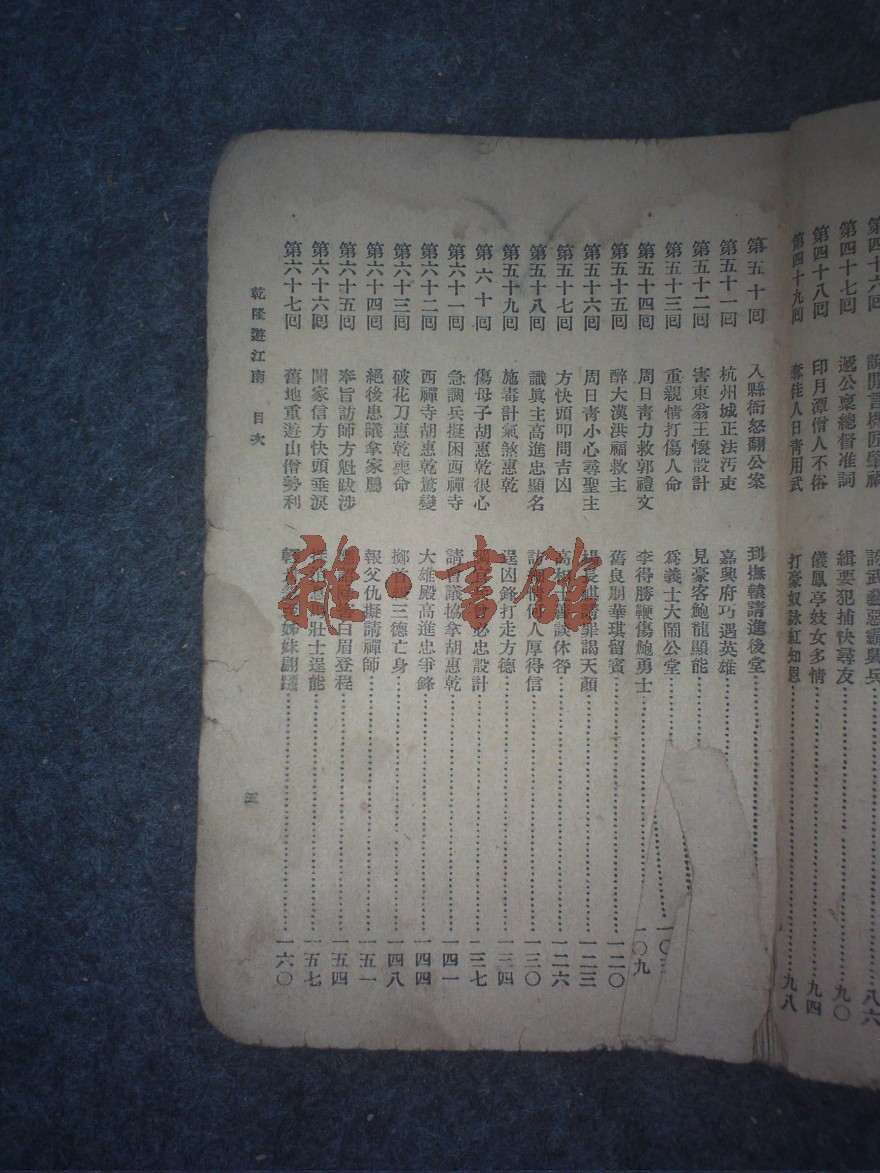 第四十六回
八六
第四十七回 遞公稟總督准詞 緝要犯捕快尋友 九〇
第四十八回 印月潭僧人不俗 儀鳳亭妓女多情 九四
第四十九回 奪佳人日青用武 打豪奴詠紅知恩 九八
第五十回 入縣衙怒翻公案 到撫轅請進後堂
第五十一回 杭州城正法汚吏 嘉興府巧遇英雄
第五十二回 害東翁王懷設計 見豪客鮑龍顯能
第五十三回 重親情打傷人命 爲義士大鬧公堂
第五十四回 周日靑力救郭禮文 李得勝鞭傷鮑勇士 一〇九
第五十五回 醉大漢洪福救主 舊良朋華琪留賓 一二〇
第五十六回 周日靑小心尋聖主 罪謁天顏 一二三
第五十七回 方快頭叩問吉凶 談休咎 一二六
第五十八回 識眞主高進忠顯名 人厚得信 一三〇
第五十九回 施毒計氣煞惠乾 逞凶鋒打走方德 一三四
第六十回 傷母子胡惠乾很心 必忠設計 一三七
第六十一回 急調兵擬困西禪寺 請會議協拿胡惠乾 一四一
第六十二回 西禪寺胡惠乾驚變 大雄殿高進忠爭鋒 一四四
第六十三回 破花刀惠乾喪命 擲首級三德亡身 一四八
第六十四回 絕後患議拿家屬 報父仇擬請禪師 一五一
第六十五回 奉旨訪師方魁跋涉 白眉登程 一五四
第六十六回 聞家信方快頭垂淚 壯士逞能 一五七
第六十七回 舊地重遊山僧勢利 姊妹翩躚 一六〇
乾隆遊江南 目次
五
雅·言館